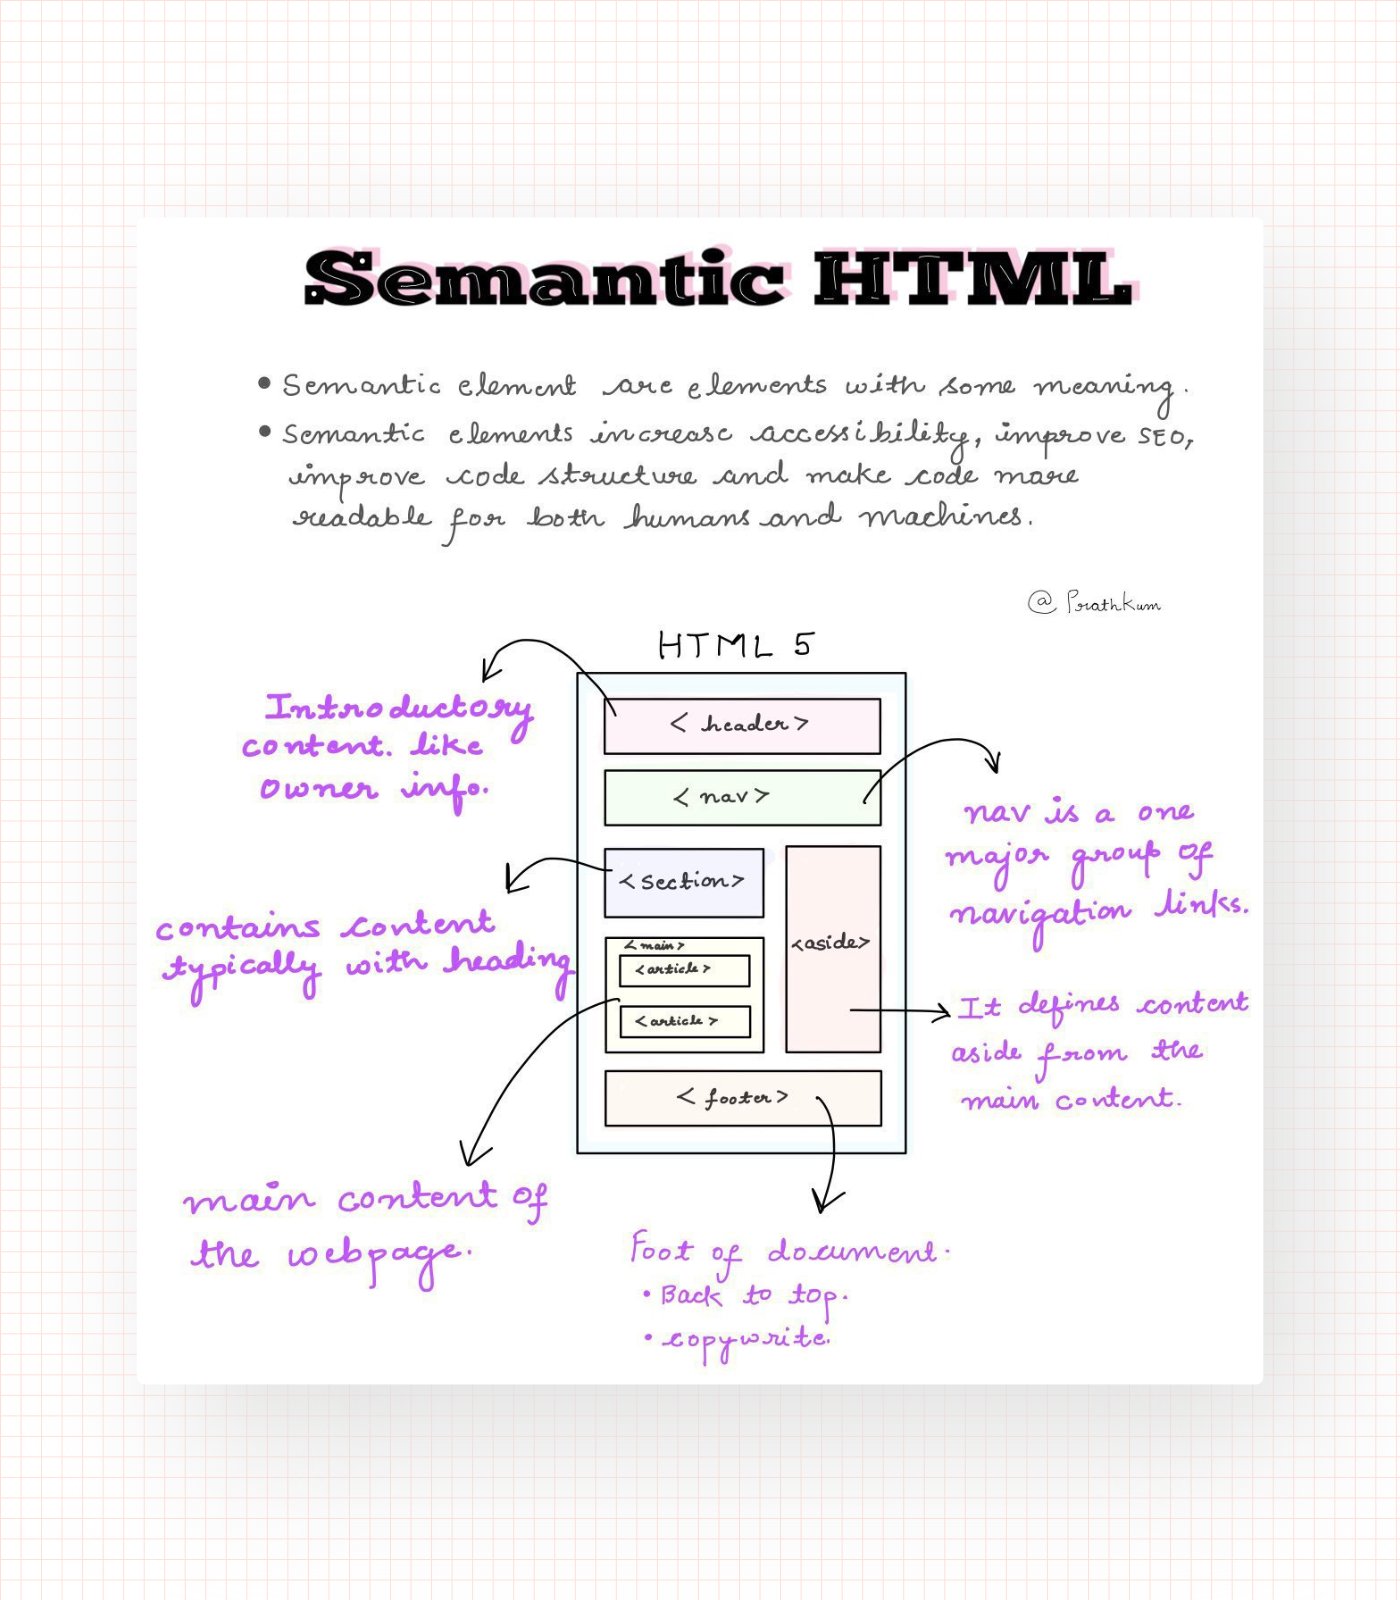 Semantic HTML
• Semantic element are elements with some meaning.
• Semantic elements increase accessibility, improve SEO,
improve code structure and make code more
readable for both humans and machines.
@ Prathkum
HTML 5
Introductory
content. like
owner info.
< header >
< nav >
nav is a one
major group of
navigation links.
< section >
contains content
typically with heading
< main >
< article >
< article >
<aside>
It defines content
aside from the
main content.
< footer >
main content of
the webpage.
Foot of document.
• Back to top.
• copywrite.